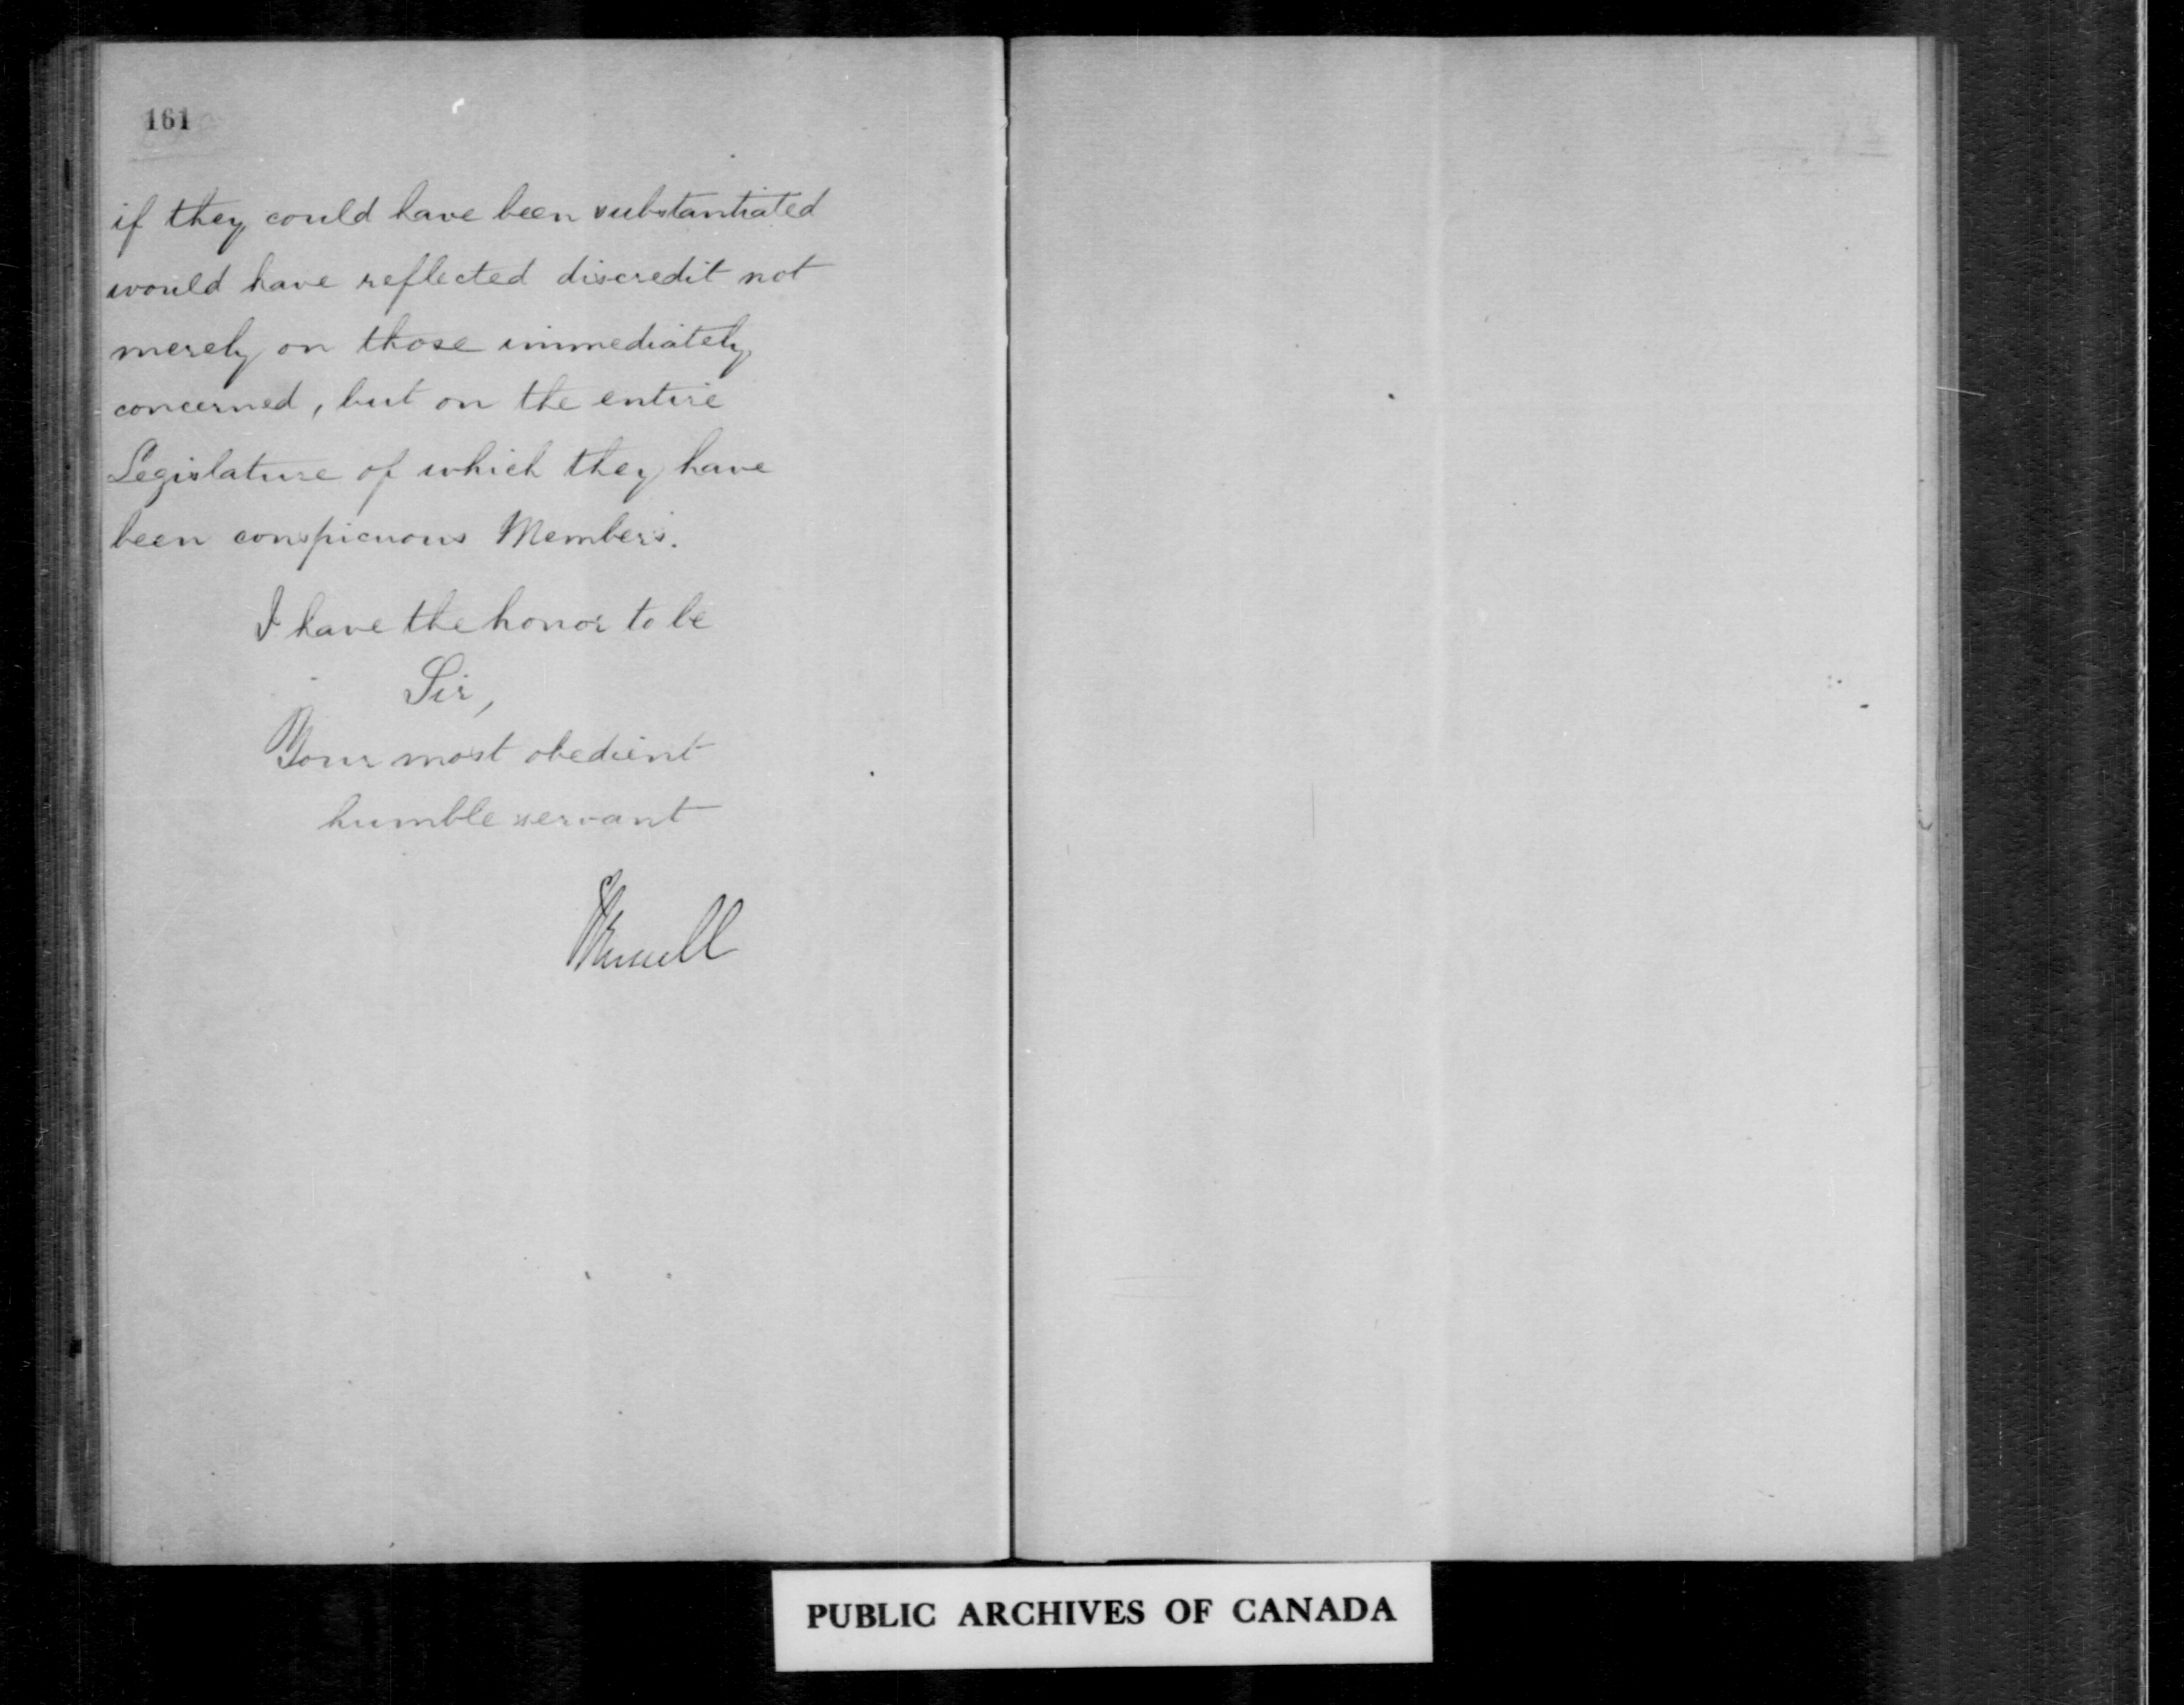 161
if they could have been substantiated
would have reflected discredit not
merely on those immediately
concerned, but on the entire
Legislature of which they have
been conspicuous Members.
I have the honor to be
Sir,
Your most obedient
humble servant
JRussell
PUBLIC ARCHIVES OF CANADA